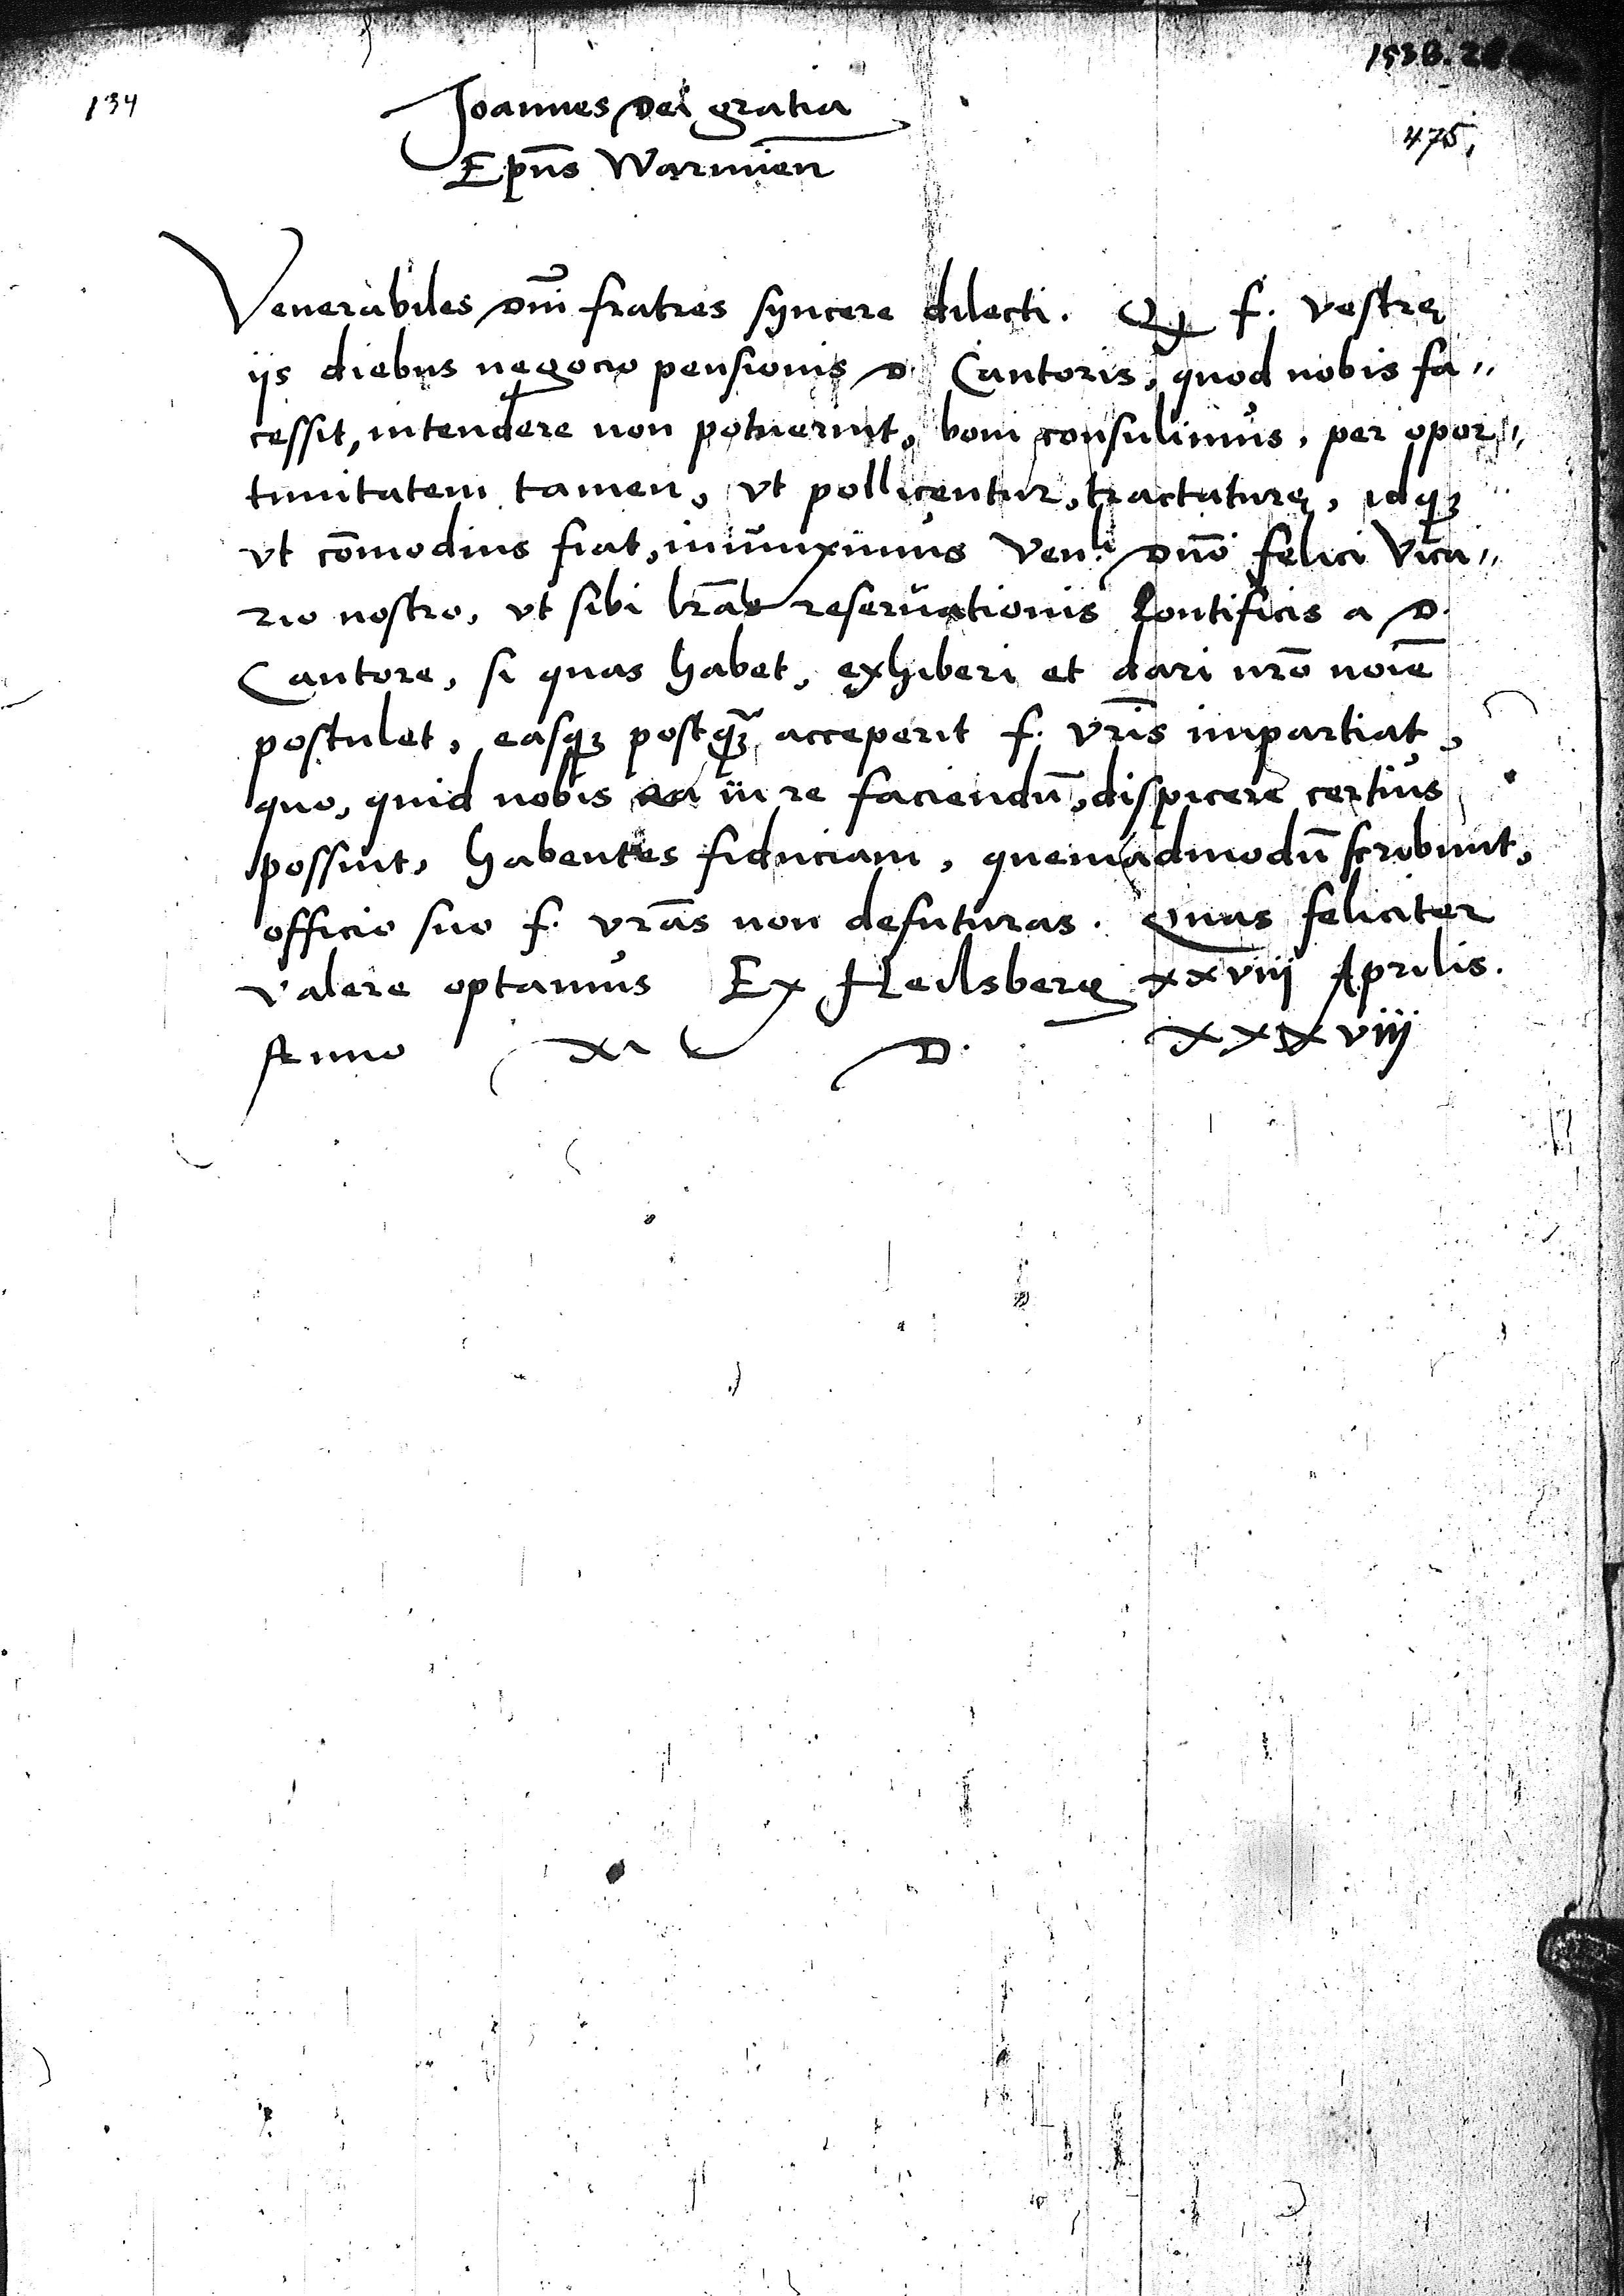 1538.28
134
475,
Joannes Dei gratia
Ep̃us Warmien̄
Venerabiles Dñi fratres syncere dilecti. Qꝫ f. vestrę
ijs diebus negocio pensionis D. Cantoris, quod nobis fa„
cessit, intendere non potuerint, boni consulimus, per opor„
tunitatem tamen, vt pollicentur, tractaturę, idqꝫ
vt cōmodius fiat, iniunximus Ven.li Dn̄o felici Vica„
rio nostro, vt sibi lr̄as reseruationis Pontificis a D.
Cantore, si quas habet, exhiberi et dari nr̄o noīe
postulet, easqꝫ postq̃ꝫ acceperit f. vr̄is impartiat,
quo, quid nobis ea in re faciendū, dispicere certius
possint, habentes fiduciam, quemadmodū scribunt,
officio suo f. vr̄as non defuturas. Quas feliciter
valere optamus Ex Heilsberg xxviij Aprilis.
Anno D. xxxviij